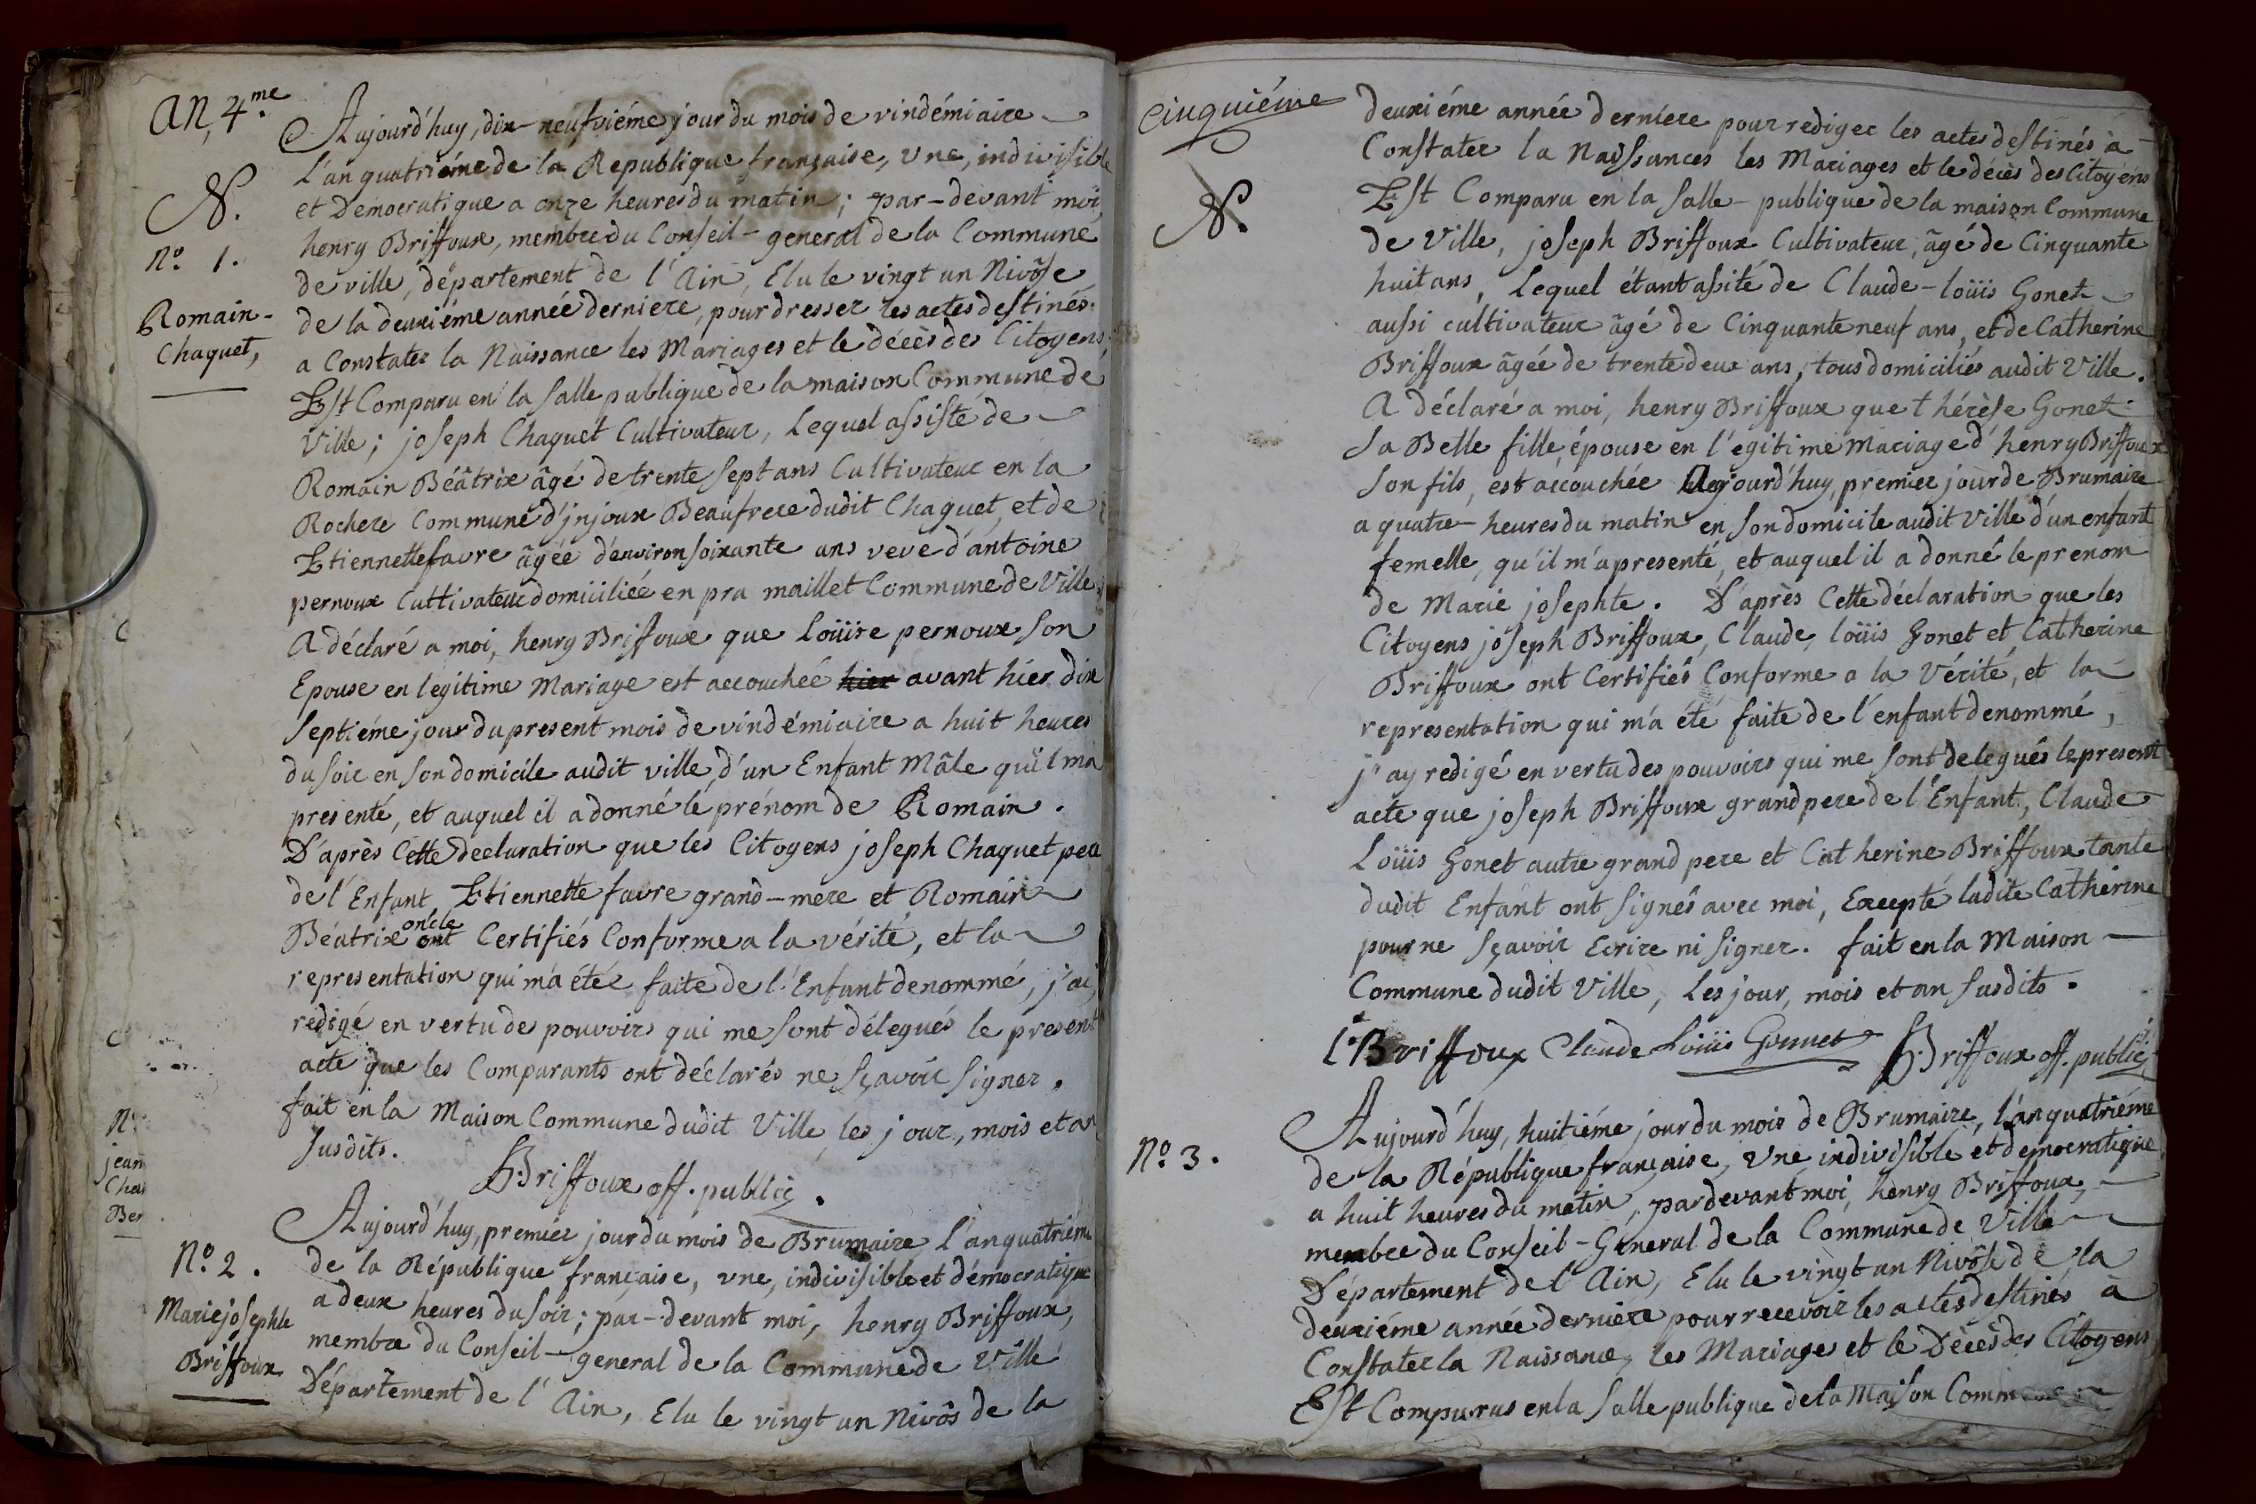 an, 4.me
N.
No. 1.
Romain-
Chaquet,
Aujourd'huy, dix-neufviéme jour du mois de vindémiaire
L'an quatriéme de la Republique française, une, indivisible
et Democratique a onze heures du matin; par-devant moi,
henry Briffoux, membre du Conseil-general de la Commune
de ville, département de l'Ain, Elu le vingt un Nivôse
de la deuxiéme année derniere, pour dresser les actes destinés
a Constater la Naissance les Mariages et le décès des Citoyens,
Est Comparu en la Salle publique de la maison Commune de
Ville; joseph Chaquet Cultivateur, Lequel assisté de
Romain Béâtrix âgé de trente sept ans Cultivateur en la
Rochere Commune d'jnjoux Beaufrere dudit Chaquet, et de
Etiennette favre âgée d'environ soixante ans veve d'antoine
pernoux Cultivateur domiciliée en pra maillet Commune de Ville,
A déclaré a moi, henry Briffoux que Loüise pernoux son
Epouse en legitime Mariage est accouchéé hier avant hier dix
septiéme jour du present mois de vindémiaire a huit heures
du soir en son domicile audit ville, d'un Enfant Mâle qu'il m'a
presenté, et auquel il a donné le prénom de Romain.
D'après Cette declaration que les Citoyens joseph Chaquet pere
de l'Enfant, Etiennette favre grand-mere et Romain
Béatrix oncle ont Certifiés Conforme a la vérité, et la
representation qui m'a étée faite de l'Enfant denommé, j'ai
redigé en vertu de pouvoirs qui me sont délegués le present
acte que les Comparants ont déclarés ne sçavoir signer.
fait en la Maison Commune dudit Ville, les jour, mois et an
susdits.
H.Briffoux off. public.
No. 2.
Marie josephte
Briffoux
Aujourd'huy, premier jour du mois de Brumaire, L'an quatriéme
de la République française, une, indivisible et démocratique
a deux heures du soir; par-devant moi, henry Briffoux,
membre du Conseil-general de la Commune de Ville
Département de l'Ain, Elu le vingt un Nivôs de la
N.
jean
Cha
Ber
Cinquiéme
N.
deuxiéme année derniere pour rediger les actes destinés à
Constater la Naissances les Mariages et le décès des Citoyens
Est Comparu en la Salle-publique de la maison Commune
de Ville, joseph Briffoux Cultivateur, âgé de Cinquante
huit ans, Lequel étant assité de Claude-loüis Gonet
aussi cultivateur âgé de Cinquante neuf ans, et de Catherine
Briffoux âgée de trente deux ans, tous domiciliés audit Ville.
A déclaré a moi, henry Briffoux que thérèse Gonet
sa Belle fille, épouse en l'egitime Mariage d'henry Briffoux
son fils, est accouchée Aujourd'huy, premier jour de Brumaire
a quatre-heures du matin en son domicile audit Ville d'un enfant
femelle, qu'il m'a presenté, et auquel il a donné le prenom
de Marie josephte. D'après Cette déclaration que les
Citoyens joseph Briffoux, Claude, loüis Gonet et Catherine
Briffoux ont Certifiés Conforme a la Vérité, et la
representation qui m'a été faite de l'enfant denommé,
j'ay redigé en vertu des pouvoirs qui me sont delegués le present
acte que joseph Briffoux grand pere de l'Enfant, Claude
Loüis Gonet autre grand pere et Catherine Briffoux tante
dudit Enfant ont signés avec moi, Excepté ladite Catherine
pour ne sçavoir Ecrire ni signer. fait en la Maison
Commune dudit Ville, Les jour, mois et an susdits.
Briffoux Claude Loüis Gonnet H.Briffoux off. public,
No. 3.
Aujourd'huy, huitiéme jour du mois de Brumaire, l'an quatriéme
de la République française, une indivisible et democratique
a huit heures du matin, par devant moi, henry Briffoux,
membre du Conseil-General de la Commune de Ville
Département de l'Ain, Elu le vingt un Nivôse de la
deuxiéme année derniere pour recevoir les actes destinés à
Constater la Naissance, les Mariages et le Décès des Citoyens
Est Comparus en la Salle publique de la Maison Commune